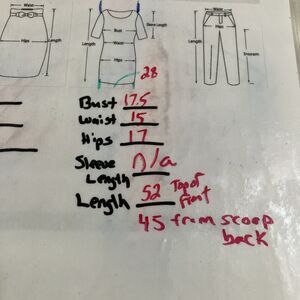 Waist
Hips
Length
Bust
Waist
Hips
Length
Sleeve Length
Waist
Hips
Length
Inseam
28
Bust 17.5
Waist 15
Hips 17
Sleeve Length n/a
Length 52 Top of Front
45 from scoop back